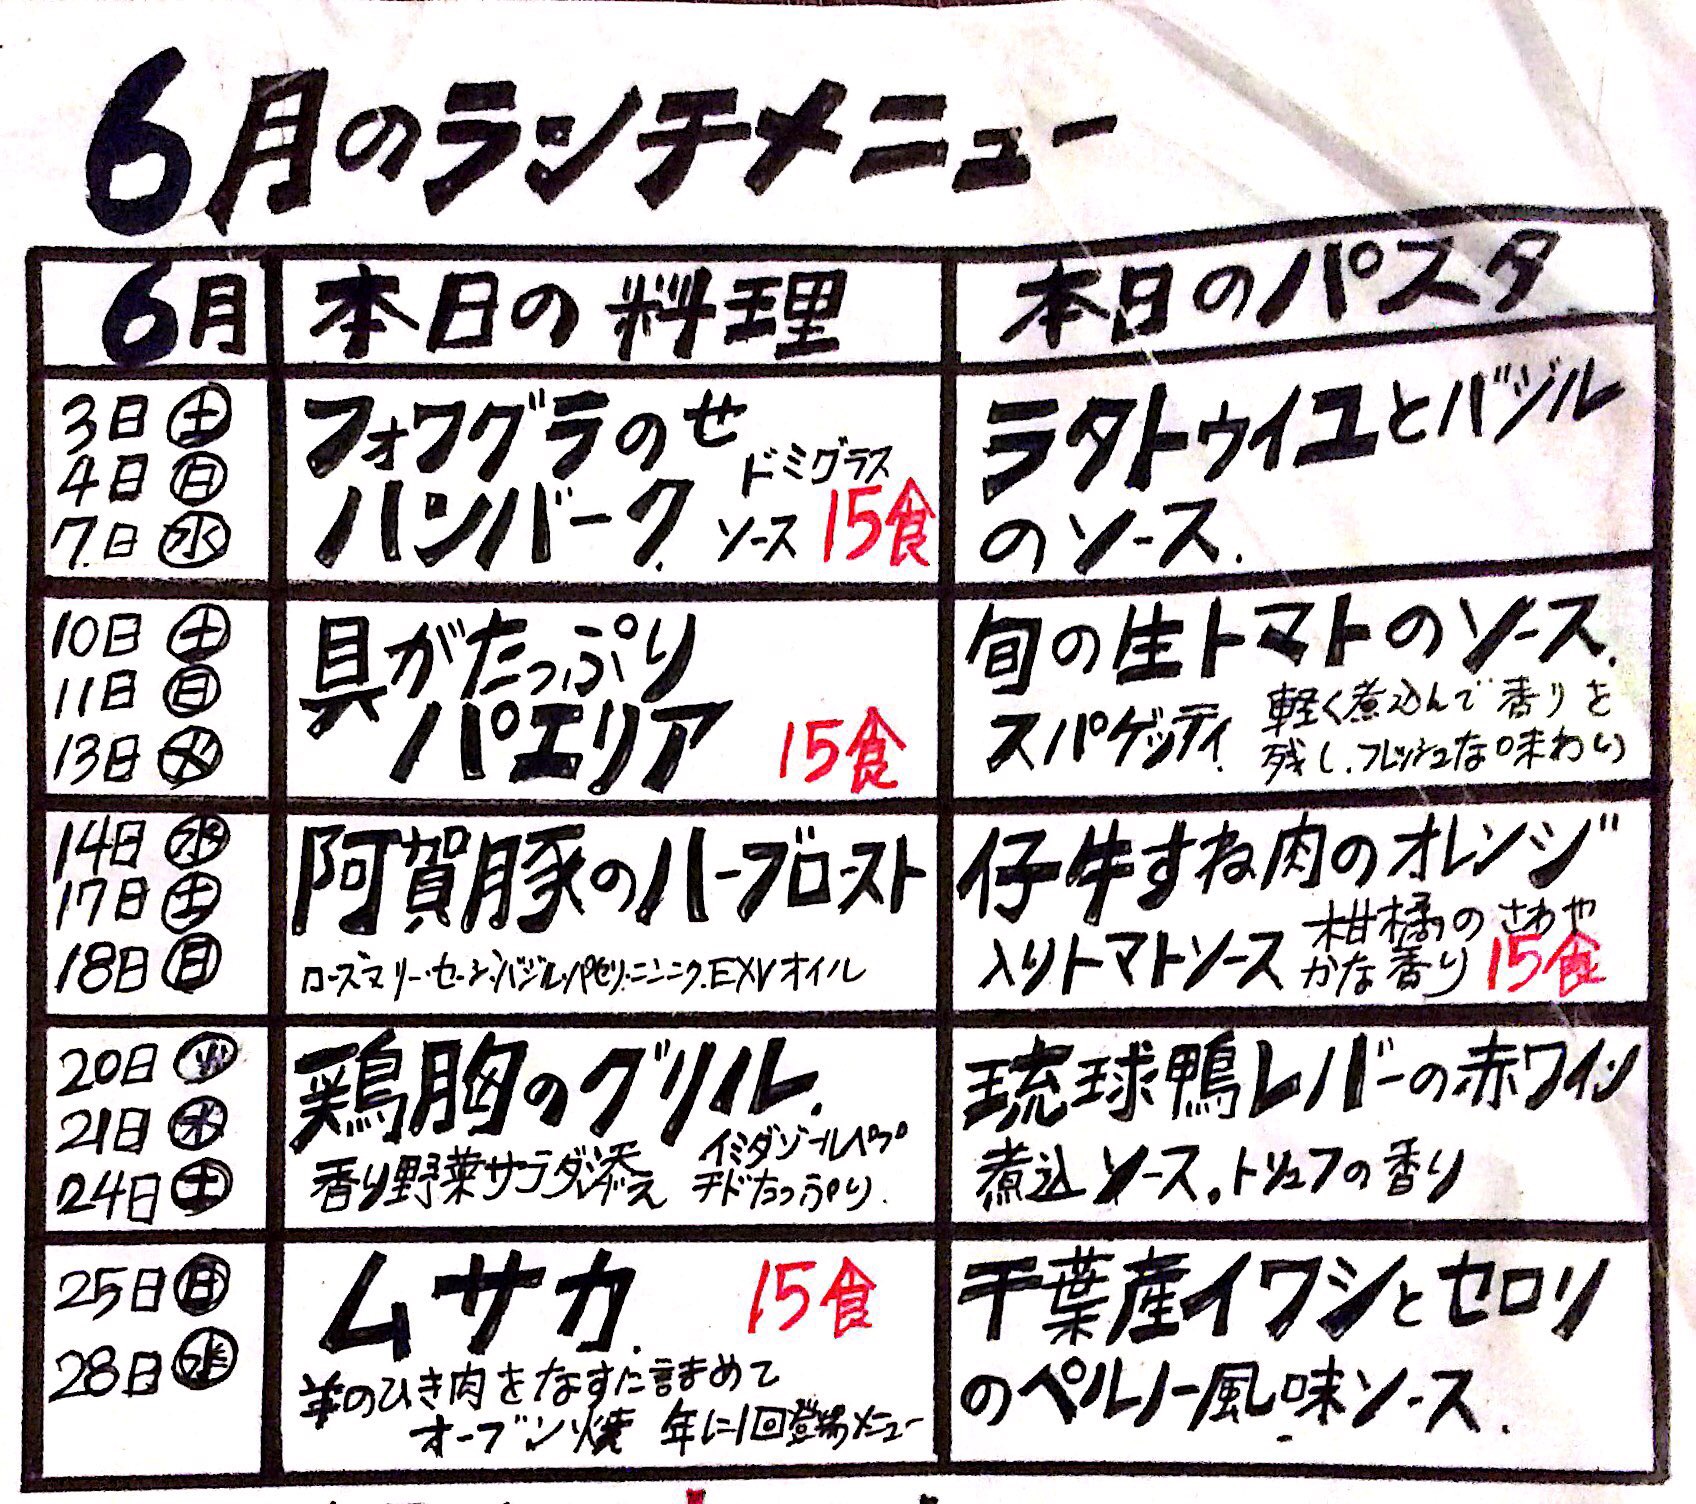 6月のランチメニュー
6月
本日の料理
本日のパスタ
3日㊏
4日㊐
7日㊌
フォワグラのせ
ハンバーグ.
ドミグラス
ソース
15食
ラタトゥイユとバジル
のソース.
10日㊏
11日㊐
13日㊋
具がたっぷり
パエリア
15食
旬の生トマトのソース.
スパゲッティ.
軽く煮込んで香りを
残し、フレッシュな味わい
14日㊌
17日㊏
18日㊐
阿賀豚のハーブロースト
ローズマリー・セージ・バジル・パセリ・ニンニク.EXVオイル
仔牛すね肉のオレンジ
入りトマトソース
柑橘のさわや
かな香り
15食
20日㊋
21日㊌
24日㊏
鶏胸のグリル.
香り野菜サラダ添え
イミダゾールペプ
チドたっぷり.
琉球鴨レバーの赤ワイン
煮込ソース。トリュフの香り
25日㊐
28日㊌
ムサカ.
15食
羊のひき肉をなすに詰めて
オーブン焼 年に1回登場メニュー
千葉産イワシとセロリ
のペルノー風味ソース.